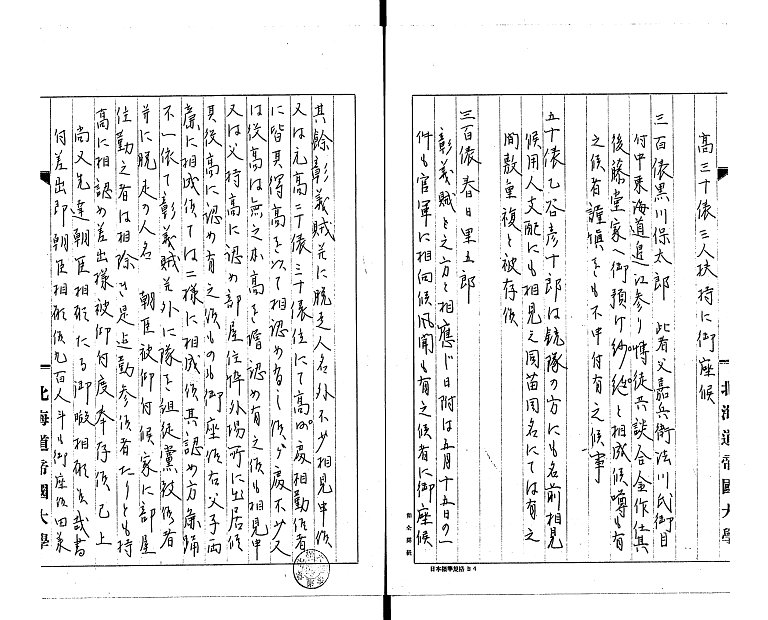 高三十俵三人扶持に御座候
三百俵黒川保太郎 此者父嘉兵衛法川氏御目
付中東海道近江参り 徒共談合金作仕其
後藤堂家へ御預け 絶と相成候噂も有
之候者謹慎をも不申付有之候事
五十俵乙谷彦十郎は銃隊の方にも名前相見
候用人支配にも相見之同苗同名にては有之
間敷重複と被存候
三百俵春日里五郎
彰義賊之方と相應じ日附は五月十五日の一
件も官軍に相向候風聞も有之候者に御座候
北海道帝國大學
日本標準規格B4
其餘彰義賊並に脱走人名外不少相見申候
又は元高二十俵三十俵位にて高 度相勤候者
に皆其得高を以て相認め有之候 度不少又
は役高は無之本高を 認め有之候も相見申
又は父持高に認め部屋住悴外場所に出居候
其役高に認め有之候ものも御座候右父子両
に相成候ては二様に相成候其認め方
不一様て彰義賊並外に隊を組徒黨致候者
并に脱走の人名 朝臣被仰付候家に部屋
住勤之者は相除き是迄勤参候者たりとも持
高に相認め差出様被仰付度奉存候已上
尚又先達朝臣相願たる御暇相願 書
付差出即朝臣相願候九百人斗も御座候由
北海道帝國大學